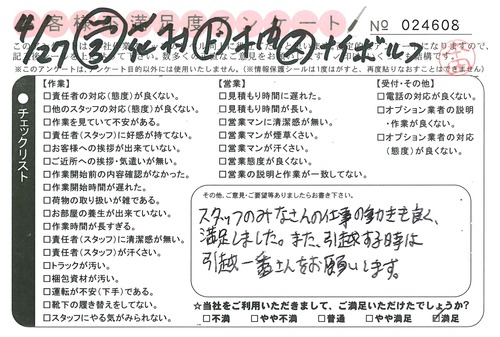 お客様ご満足度アンケート
№ 024608
4/27
※このアンケートは、アンケート目的以外には使用いたしません。(※情報保護シールは1度はがすと、再度貼りなおすことはできません)
チェックリスト
【作業】
□責任者の対応(態度)が良くない。
□他のスタッフの対応(態度)が良くない。
□作業を見ていて不安がある。
□責任者(スタッフ)に好感が持てない。
□お客様への挨拶が出来ていない。
□ご近所への挨拶・気遣いが無い。
□作業開始前の内容確認がなかった。
□作業開始時間が遅れた。
□荷物の取り扱いが雑である。
□お部屋の養生が出来ていない。
□作業時間が長すぎる。
□責任者(スタッフ)に清潔感が無い。
□責任者(スタッフ)が汗くさい。
□トラックが汚い。
□梱包資材が汚い。
□運転が不安(下手)である。
□靴下の履き替えをしてない。
□スタッフにやる気がみられない。
【営業】
□見積もり時間に遅れた。
□見積もり時間が長い。
□営業マンに清潔感が無い。
□営業マンが煙草くさい。
□営業マンが汗くさい。
□営業態度が良くない。
□営業の説明と作業が一致してない。
【受付・その他】
□電話の対応が良くない。
□オプション業者の説明
・作業が良くない。
□オプション業者の対応
(態度)が良くない。
その他、ご意見・ご要望等ありましたらお書き下さい。
スタッフのみなさんの仕事の動きも良く、
満足しました。また、引越する時は
引越一番さんをお願いします。
☆当社をご利用いただきまして、ご満足いただけたでしょうか?
□不満 □やや不満 □普通 □やや満足 □満足